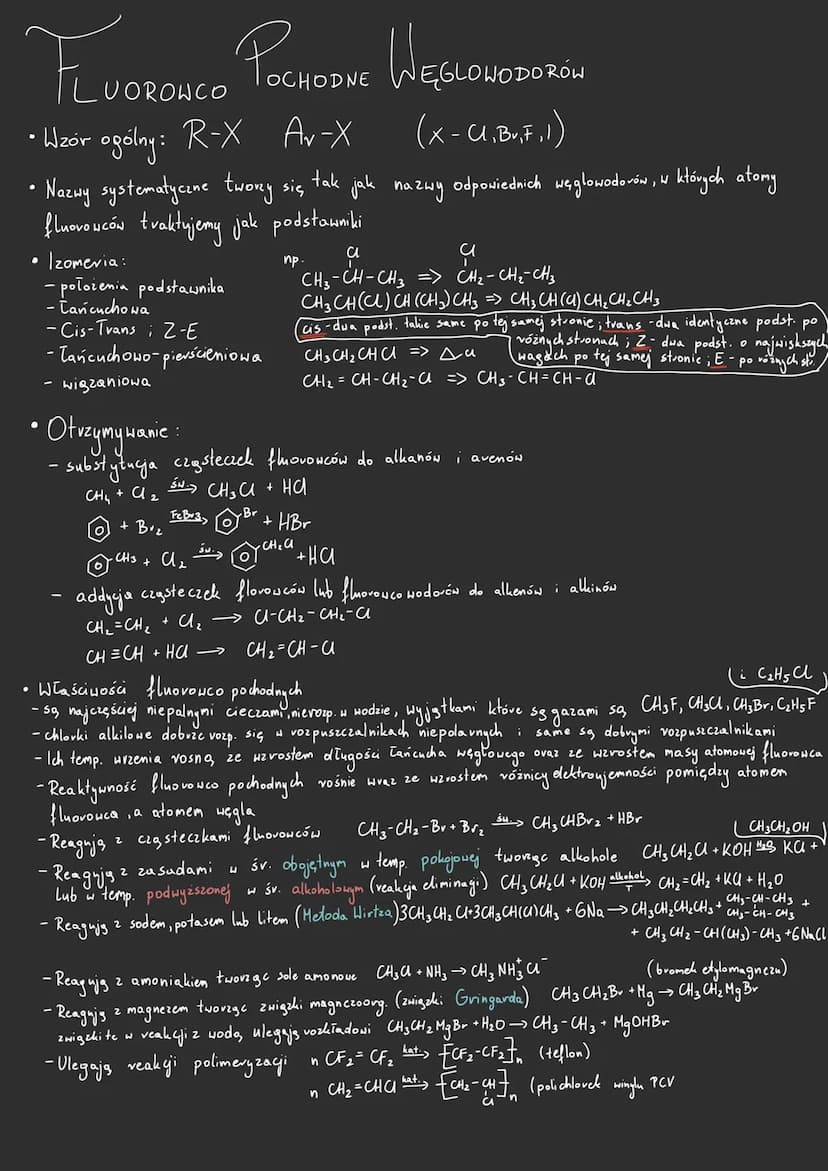 FLUOROWCO POCHODNE WĘGLOWODORÓW
• Wzór ogólny: R-X Ar-X (X - Cl, Br, F, I)
• Nazwy systematyczne tworzy się tak jak nazwy odpowiednich węglowodorów, w których atomy
fluorowców traktujemy jak podstawniki
• Izomeria:
- położenia podstawnika
- Łańcuchowa
- Cis-Trans i Z-E
- Łańcuchowo-pierścieniowa
- wiązaniowa
np.
Cl Cl
CH3-CH-CH3 => CH2-CH2-CH3
CH3CH(CL)CH(CH3)CH3 => CH3CH(Cl)CH2CH2CH3
cis - dwa podst. takie same po tej samej stronie; trans - dwa identyczne podst. po
różnych stronach; Z - dwa podst. o największych
wagach po tej samej stronie; E - po różnych str.
CH3CH2CHCl => △Cl
CH2=CH-CH2-Cl => CH3-CH=CH-Cl
• Otrzymywanie:
- substytucja cząsteczek fluorowców do alkanów i arenów
CH4 + Cl2 św.→ CH3Cl + HCl
+ Br2 FeBr3→ Br + HBr
CH3 + Cl2 św.→ CH2Cl + HCl
- addycja cząsteczek florowców lub fluorowcowodorów do alkenów i alkinów
CH2=CH2 + Cl2 → Cl-CH2-CH2-Cl
CH≡CH + HCl → CH2=CH-Cl
• Właściwości fluorowco pochodnych
i C2H5Cl
- są najczęściej niepalnymi cieczami, nierozp. w wodzie, wyjątkami które są gazami są CH3F, CH3Cl, CH3Br, C2H5F
- chlorki alkilowe dobrze rozp. się w rozpuszczalnikach niepolarnych i same są dobrymi rozpuszczalnikami
- Ich temp. wrzenia rosną ze wzrostem długości łańcucha węglowego oraz ze wzrostem masy atomowej fluorowca
- Reaktywność fluorowco pochodnych rośnie wraz ze wzrostem różnicy elektroujemności pomiędzy atomem
fluorowca, a atomem węgla
- Reagują z cząsteczkami fluorowców CH3-CH2-Br + Br2 św.→ CH3CHBr2 + HBr
CH3CH2OH
- Reagują z zasadami w śr. obojętnym w temp. pokojowej tworząc alkohole CH3CH2Cl + KOH H2O→ KCl +
lub w temp. podwyższonej w śr. alkoholowym (reakcja eliminagi) CH3CH2Cl + KOH alkohol T→ CH2=CH2 + KCl + H2O
- Reagują z sodem, potasem lub litem (Metoda Wirtza) 3CH3CH2Cl+3CH3CH(Cl)CH3 + 6Na → CH3CH2CH2CH3 + CH3-CH-CH3 CH3-CH-CH3 +
+ CH3CH2-CH(CH3)-CH3 + 6NaCl
- Reagują z amoniakiem tworząc sole amonowe CH3Cl + NH3 → CH3NH3+Cl-
(bromek etylomagnezu)
- Reagują z magnezem tworząc związki magnezoorg. (związki Gringarda) CH3CH2Br + Mg → CH3CH2MgBr
związki te w reakcji z wodą, ulegają rozkładowi CH3CH2MgBr + H2O → CH3-CH3 + MgOHBr
- Ulegają reakcji polimeryzacji n CF2=CF2 kat.→ [CF2-CF2]n (teflon)
n CH2=CHCl kat.→ [CH2-CH]n (polichlorek winylu PCV
Cl